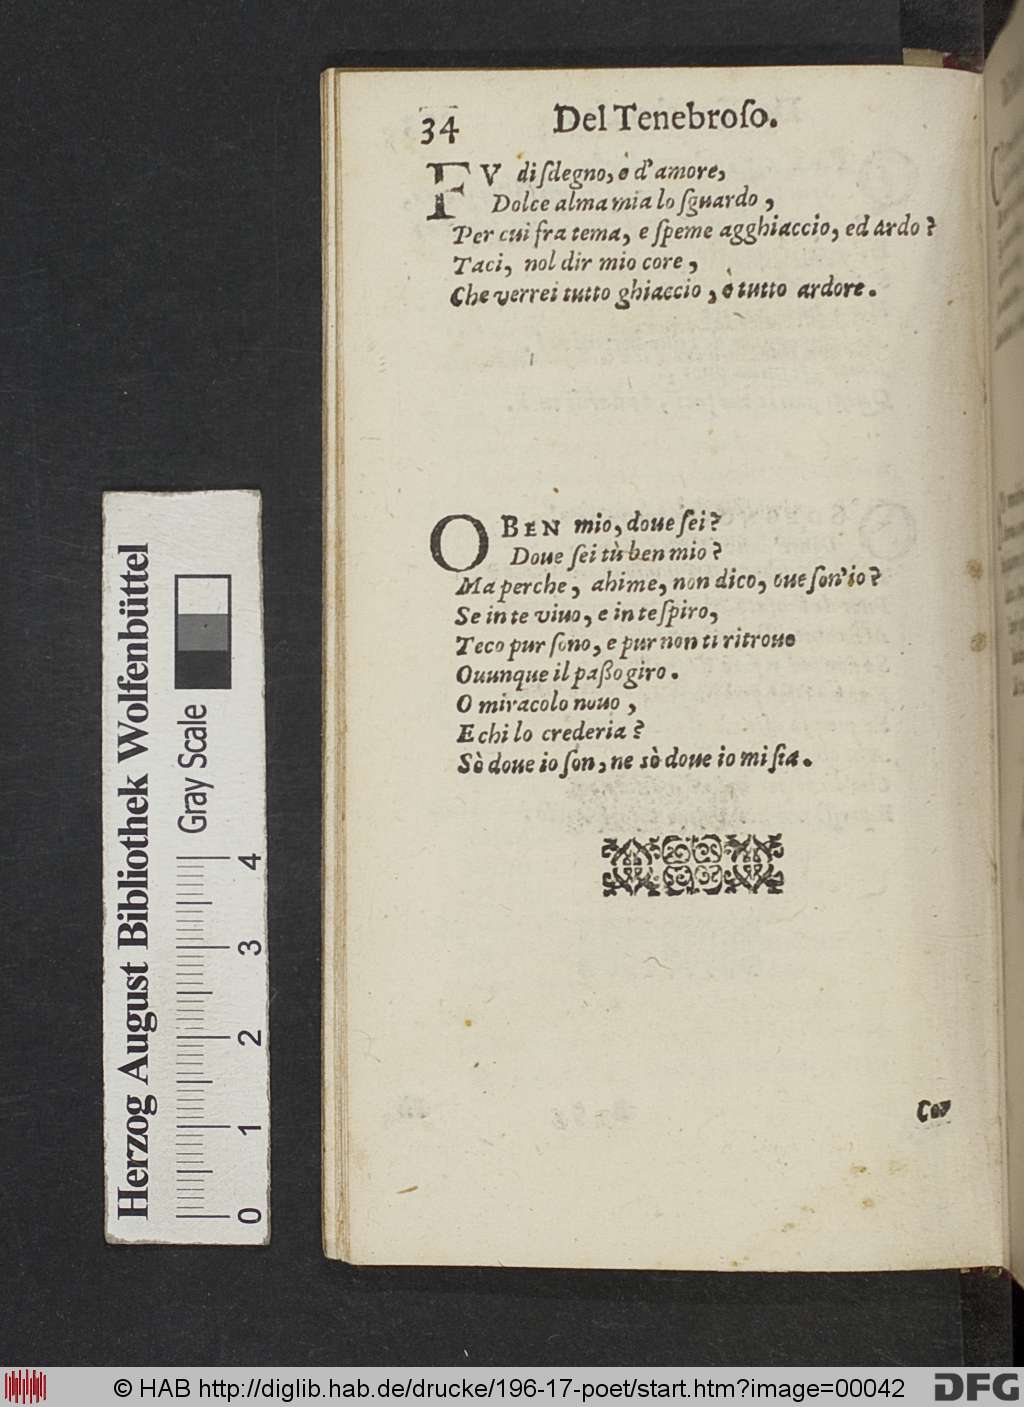 34 Del Tenebroſo.
FV di ſdegno, ò d'amore,
Dolce alma mia lo ſguardo,
Per cui fra tema, e ſpeme agghiaccio, ed ardo?
Taci, nol dir mio core,
Che verrei tutto ghiaccio, ò tutto ardore.
O BEN mio, doue ſei?
Doue ſei tù ben mio?
Ma perche, ahime, non dico, oue ſon'io?
Se in te viuo, e in te ſpiro,
Teco pur ſono, e pur non ti ritrouo
Ouunque il paßo giro.
O miracolo nouo,
E chi lo crederia?
Sò doue io ſon, ne sò doue io mi ſia.
Cor
Herzog August Bibliothek Wolfenbüttel
Gray Scale
0 1 2 3 4
© HAB http://diglib.hab.de/drucke/196-17-poet/start.htm?image=00042
DFG